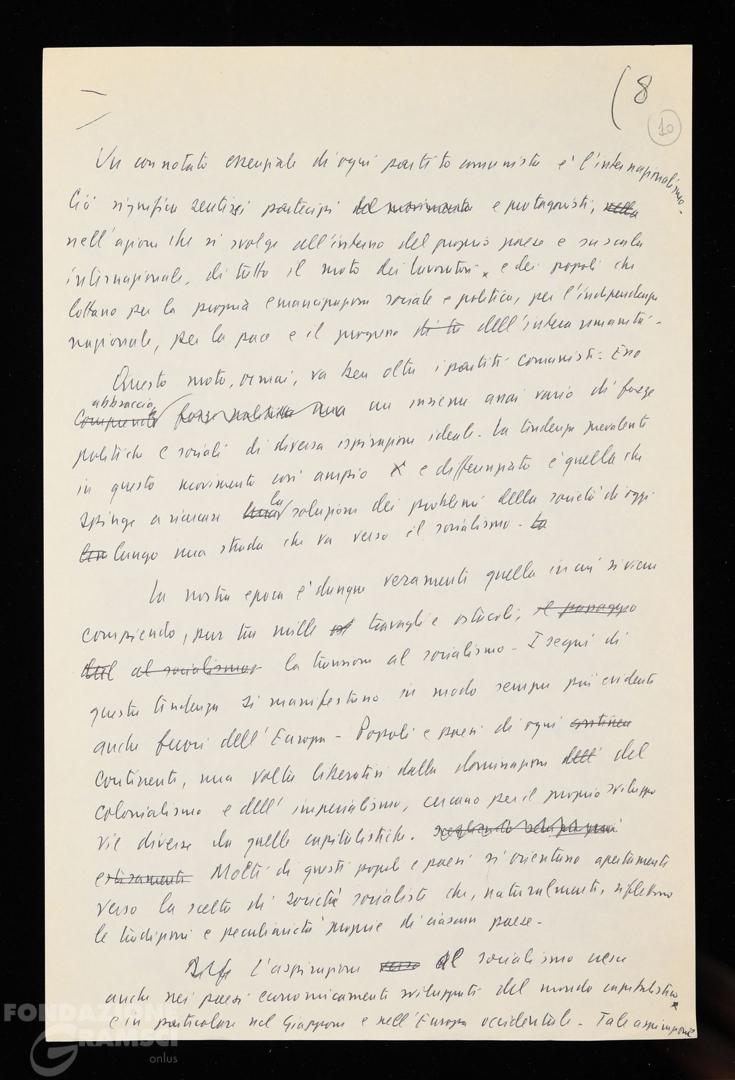 (8
10
Un connotato essenziale di ogni partito comunista è l'internazionalismo.
Ciò significa sentirsi partecipi del movimento e protagonisti, nella
nell'azione che si svolge all'interno del proprio paese e su scala
internazionale, di tutto il moto dei lavoratori e dei popoli che
lottano per la propria emancipazione sociale e politica, per l'indipendenza
nazionale, per la pace e il progresso di tu dell'intera umanità.
Questo moto, ormai, va ben oltre i partiti comunisti. Esso
abbraccia
un insieme assai vario di forze
politiche e sociali di diversa ispirazione ideale. La tendenza prevalente
in questo movimento così ampio e differenziato è quella che
spinge a ricercare la soluzione dei problemi della società di oggi
lun lungo una strada che va verso il socialismo. La
La nostra epoca è dunque veramente quella in cui si viene
compiendo, pur tra mille ost travagli e ostacoli, il passaggio
del al socialismo la transizione al socialismo. I segni di
questa tendenza si manifestano in modo sempre più evidente
anche fuori dell'Europa. Popoli e paesi di ogni continen
continente, una volta liberatisi dalla dominazione dell' del
colonialismo e dell'imperialismo, cercano per il proprio sviluppo
vie diverse da quelle capitalistiche.
Molti di questi popoli e paesi si orientano apertamente
verso la scelta di società socialiste che, naturalmente, riflettono
le tradizioni e peculiarità proprie di ciascun paese.
L'aspirazione verso al socialismo cresce
anche nei paesi economicamente sviluppati del mondo capitalistico
e in particolare nel Giappone e nell'Europa occidentale. Tale aspirazione
FONDAZIONE
GRAMSCI
onlus